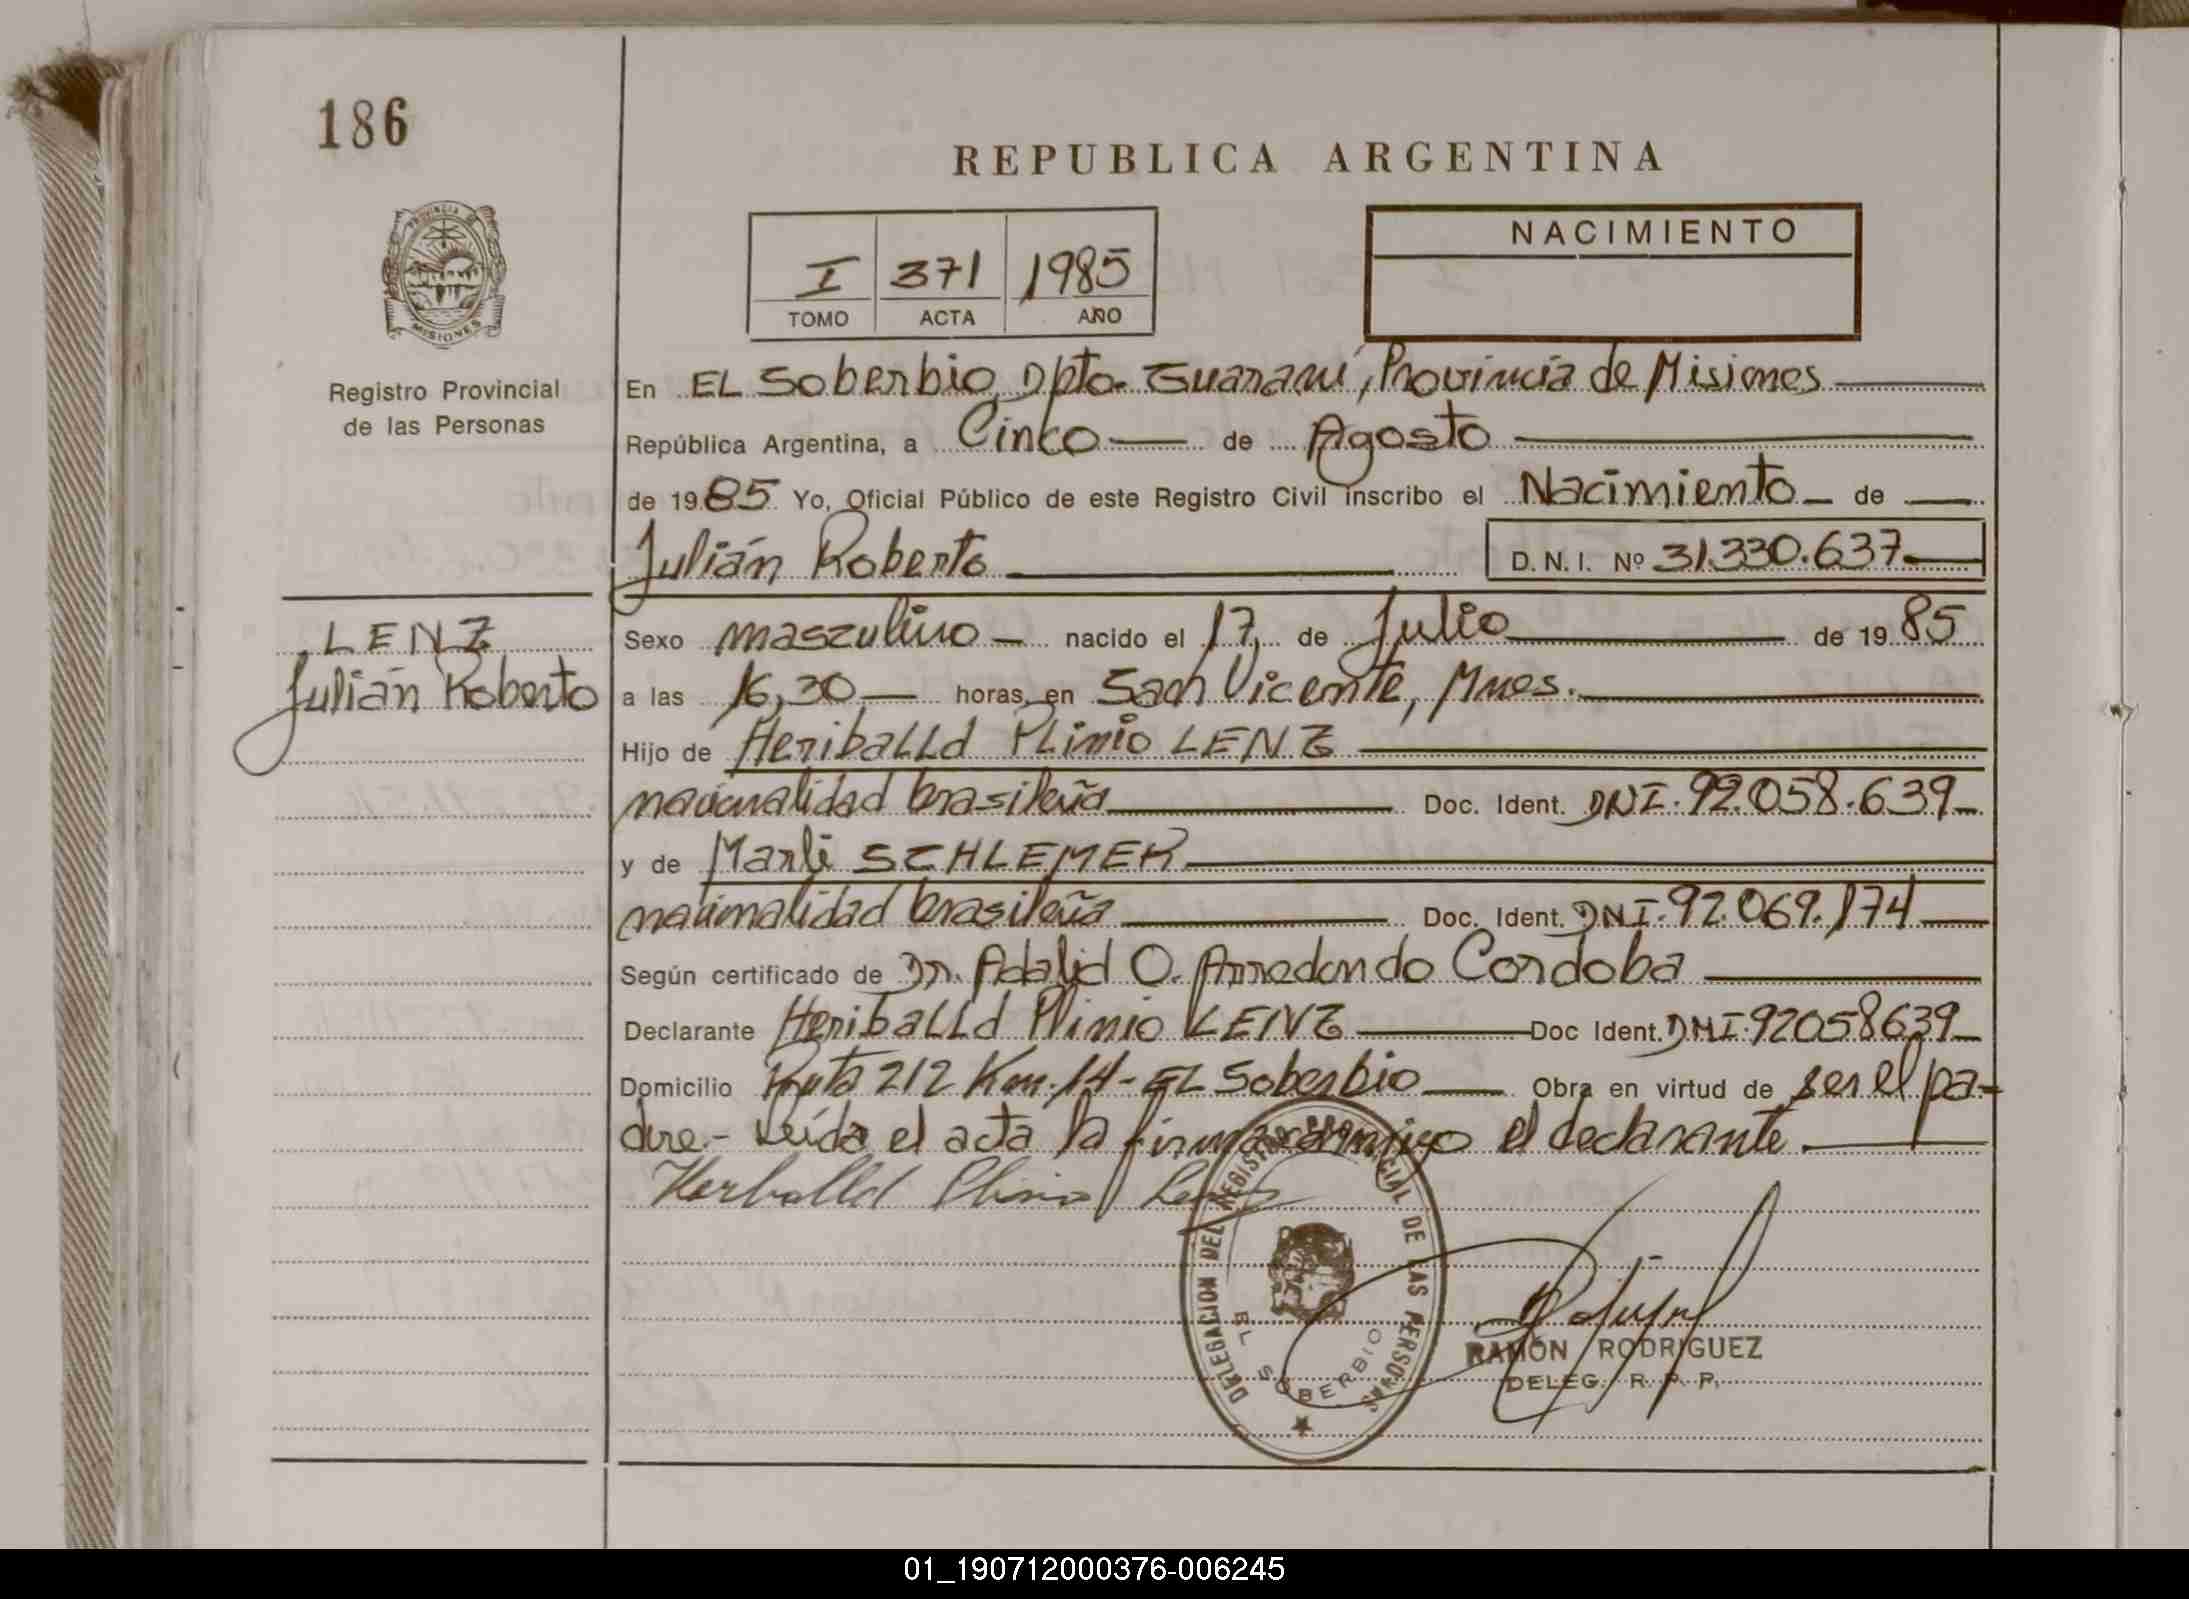 186
REPUBLICA ARGENTINA
PROVINCIA DE
MISIONES
Registro Provincial
de las Personas
I 371 1985
TOMO ACTA AÑO
NACIMIENTO
En EL Soberbio, Dpto. Guaraní, Provincia de Misiones
República Argentina, a Cinco de Agosto
de 1985 Yo, Oficial Público de este Registro Civil inscribo el Nacimiento de
Julián Roberto D.N.I. Nº 31.330.637
LENZ
Julián Roberto
Sexo masculino nacido el 17 de Julio de 1985
a las 16,30 horas, en San Vicente, Mnes.
Hijo de HeribaLLd PLinio LENZ
nacionalidad brasileña Doc. Ident. DNI. 92.058.639
y de Marli SCHLEMER
nacionalidad brasileña Doc. Ident. DNI. 92.069.174
Según certificado de Dr. Adalid O. Arredondo Cordoba
Declarante HeribaLLd Plinio LENZ Doc Ident. DNI. 92058639
Domicilio Ruta 212 Km. 14 - EL Soberbio Obra en virtud de ser el pa-
dre.- Leída el acta la firma conmigo el declarante.
Herballd Plinio Lenz
DELEGACION DEL REGISTRO PROVINCIAL DE LAS PERSONAS
EL SOBERBIO
RAMÓN RODRIGUEZ
DELEG. R. P. P.
01_190712000376-006245